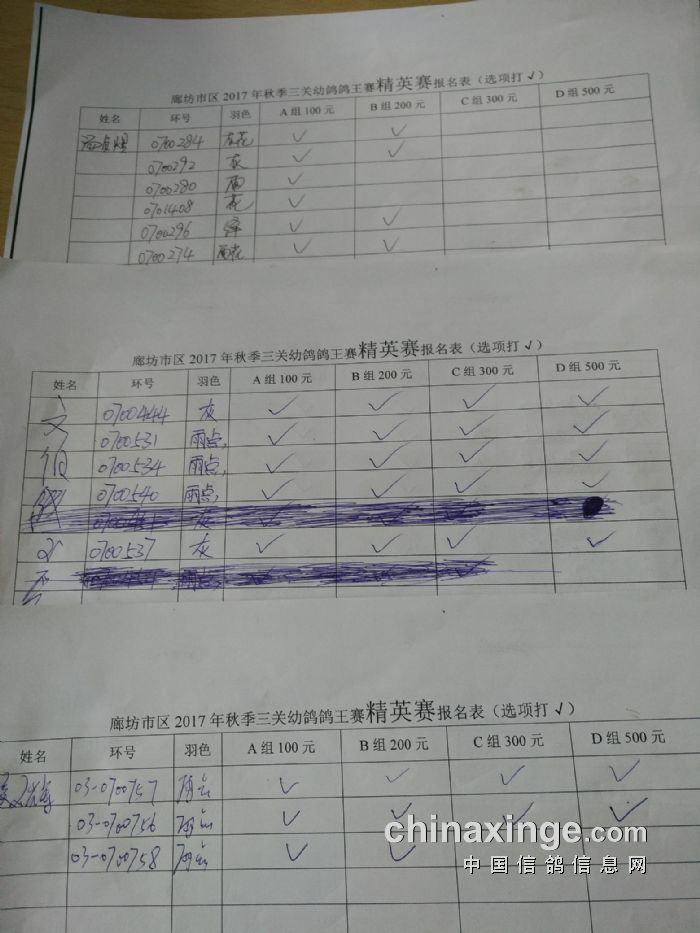 廊坊市区 2017 年秋季三关幼鸽鸽王赛精英赛报名表（选项打 √）
姓名 环号 羽色 A 组 100 元 B 组 200 元 C 组 300 元 D 组 500 元
0700284 灰花 ✓ ✓
0700292 灰 ✓ ✓
0700280 雨 ✓
0701408 花 ✓
0700296 绛 ✓ ✓
0700274 雨花 ✓ ✓
廊坊市区 2017 年秋季三关幼鸽鸽王赛精英赛报名表（选项打 √）
姓名 环号 羽色 A 组 100 元 B 组 200 元 C 组 300 元 D 组 500 元
0700444 灰 ✓ ✓ ✓ ✓
0700531 雨点 ✓ ✓ ✓ ✓
0700534 雨点 ✓ ✓ ✓ ✓
0700540 雨点 ✓ ✓ ✓ ✓
0700537 灰 ✓ ✓ ✓ ✓
廊坊市区 2017 年秋季三关幼鸽鸽王赛精英赛报名表（选项打 √）
姓名 环号 羽色 A 组 100 元 B 组 200 元 C 组 300 元 D 组 500 元
03-0700757 雨点 ✓ ✓ ✓ ✓
03-0700756 雨点 ✓ ✓ ✓ ✓
03-0700758 雨点 ✓ ✓
chinaxinge.com
中国信鸽信息网